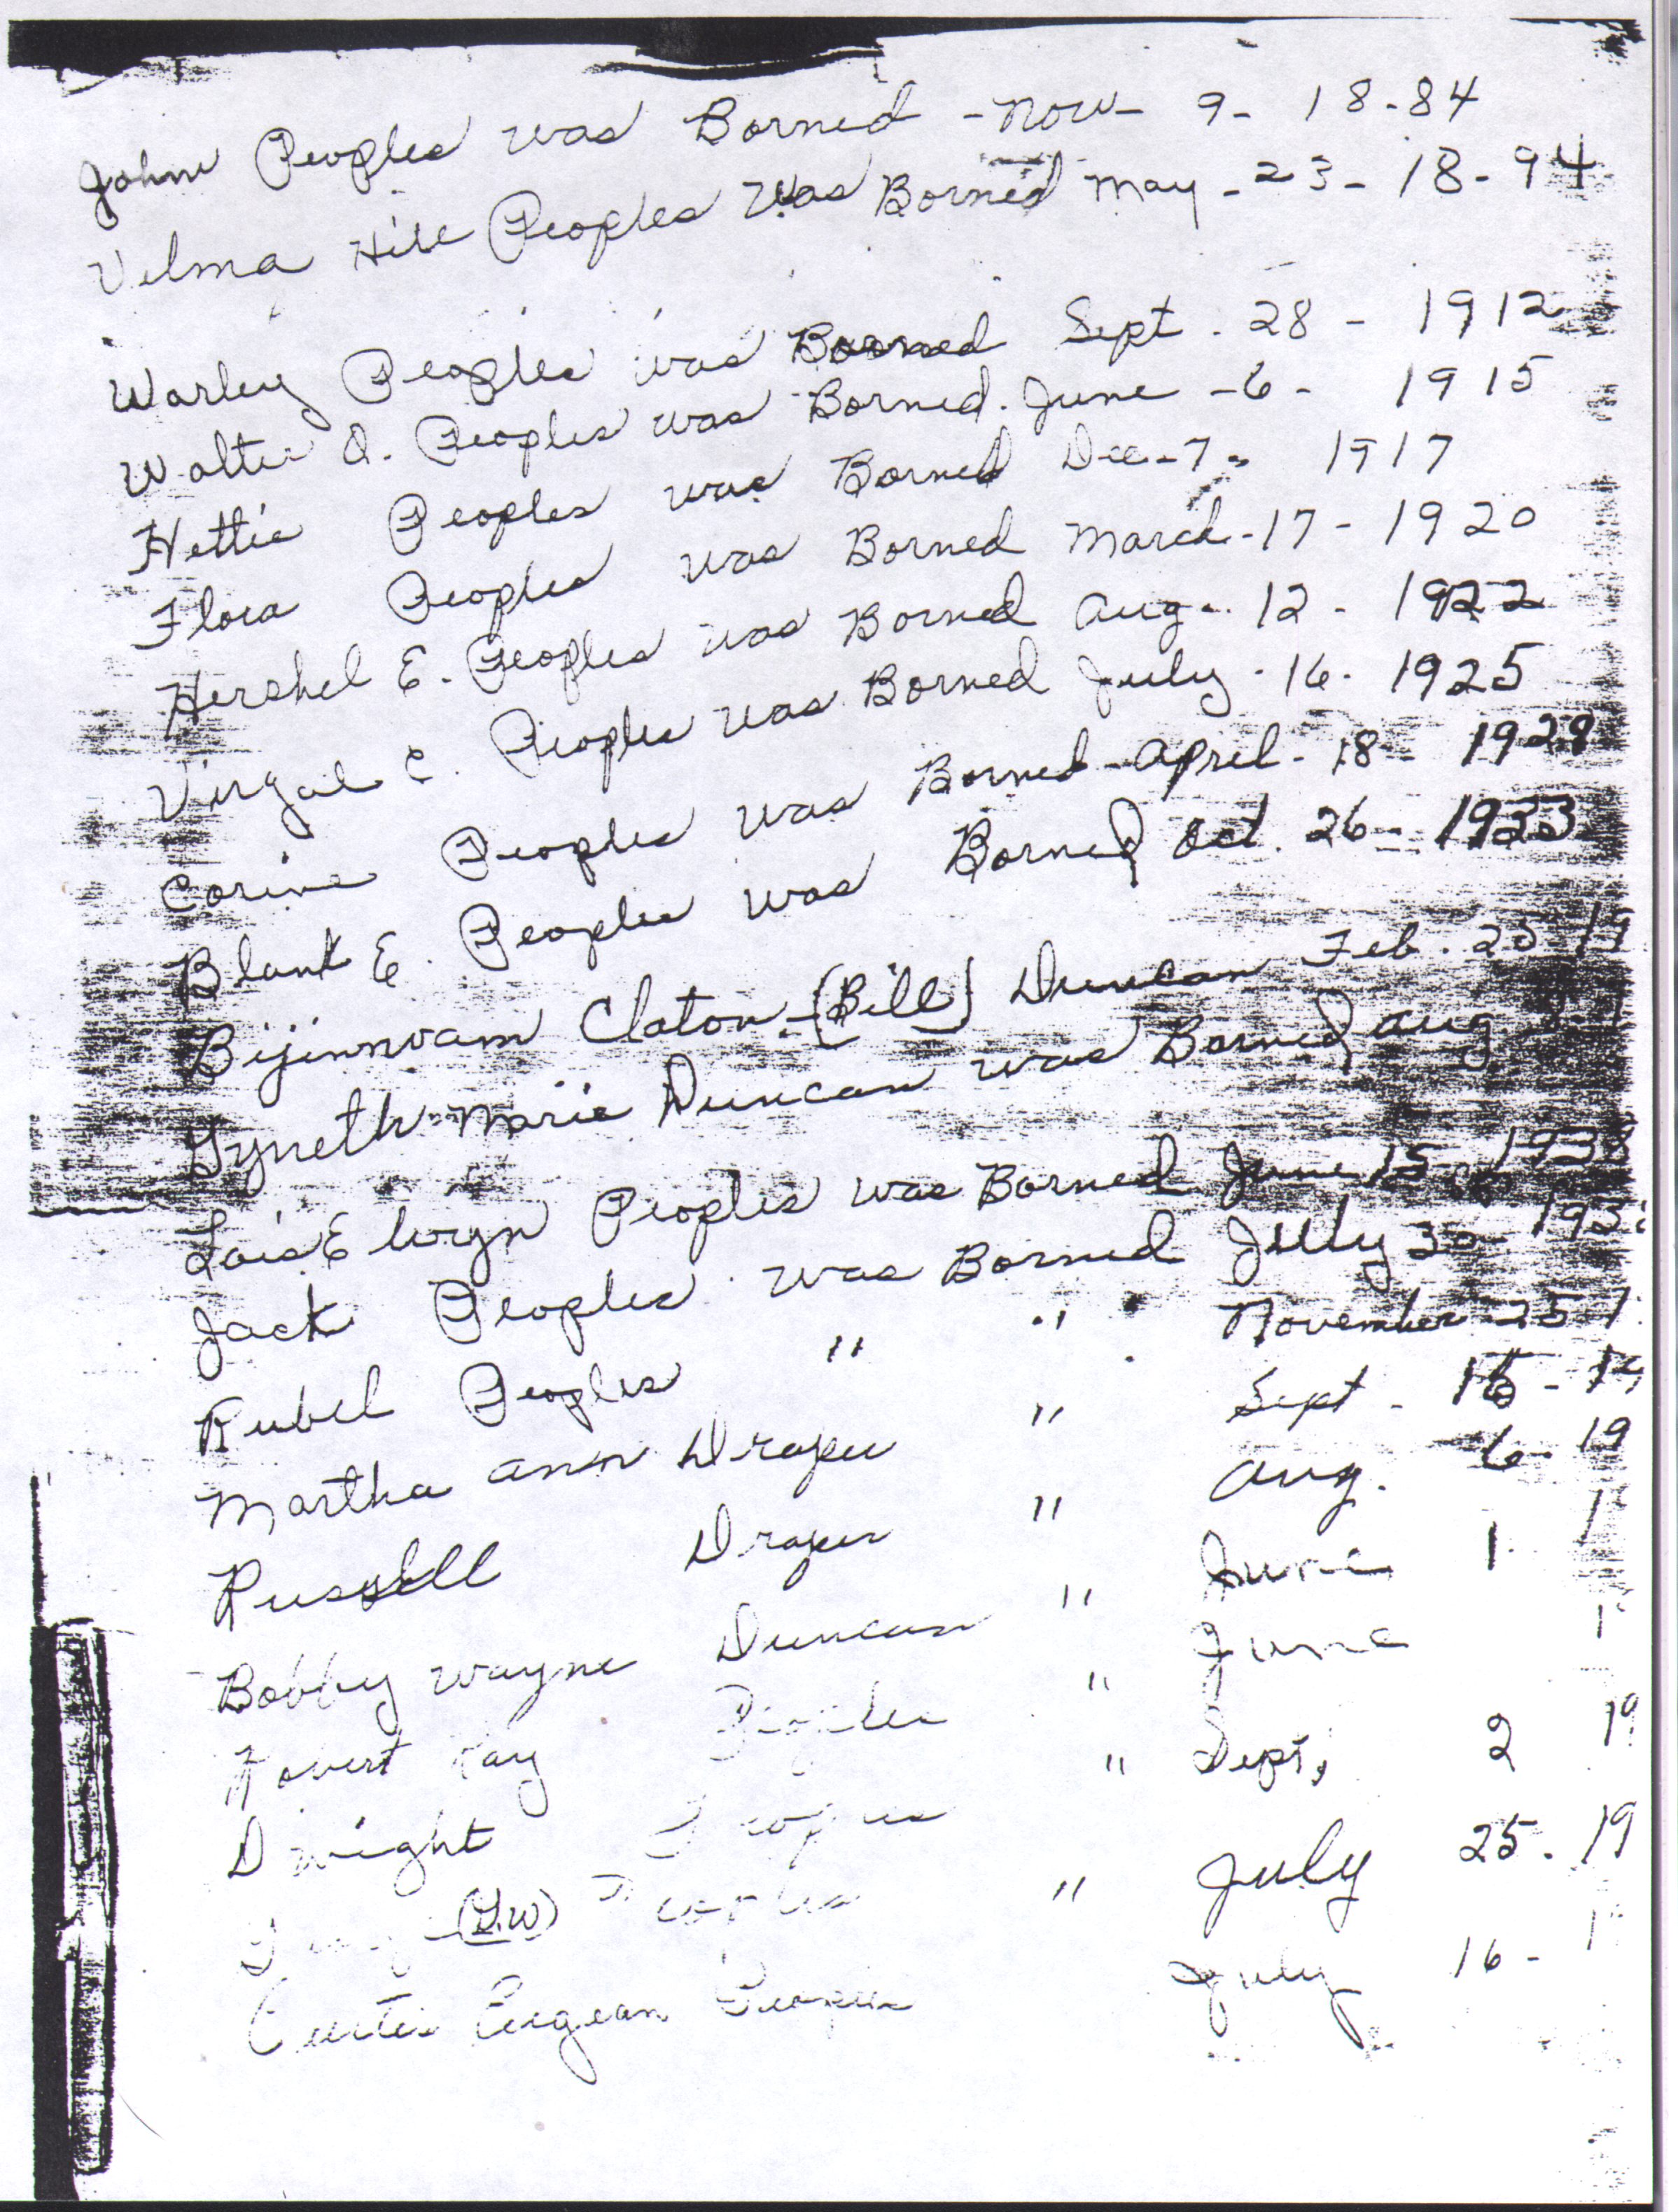 John Peoples was Borned - Nov - 9 - 18-84
Velma Hill Peoples Was Borned May - 23 - 18-94
Warley Peoples was Borned Sept. 28 - 1912
Walter O. Peoples was Borned. June - 6 - 1915
Hettie Peoples was Borned Dec - 7 - 1917
Flora Peoples was Borned March - 17 - 1920
Hershel E. Peoples was Borned Aug - 12 - 1922
Virgail C. Peoples was Borned July - 16 - 1925
Corine Peoples was Borned - April - 18 - 1929
Blank E. Peoples was Borned Oct. 26 - 1933
Claton - (Bill) Duncan Feb. 25
Gyneth Marie Duncan was Borned Aug
Lois Elwyn Peoples was Borned June 15 - 1938
Jack Peoples was Borned July 30 - 193
Rubel Peoples " " November 25
Martha Ann Draper " Sept - 15 - 19
Russell Draper " Aug. 6 - 19
Bobby Wayne Duncan " June 1
Robert Ray Peoples " June
Dwight Peoples " Sept, 2 19
(G.W) Peoples " July 25. 19
Curtis Eugean Peoples July 16 -